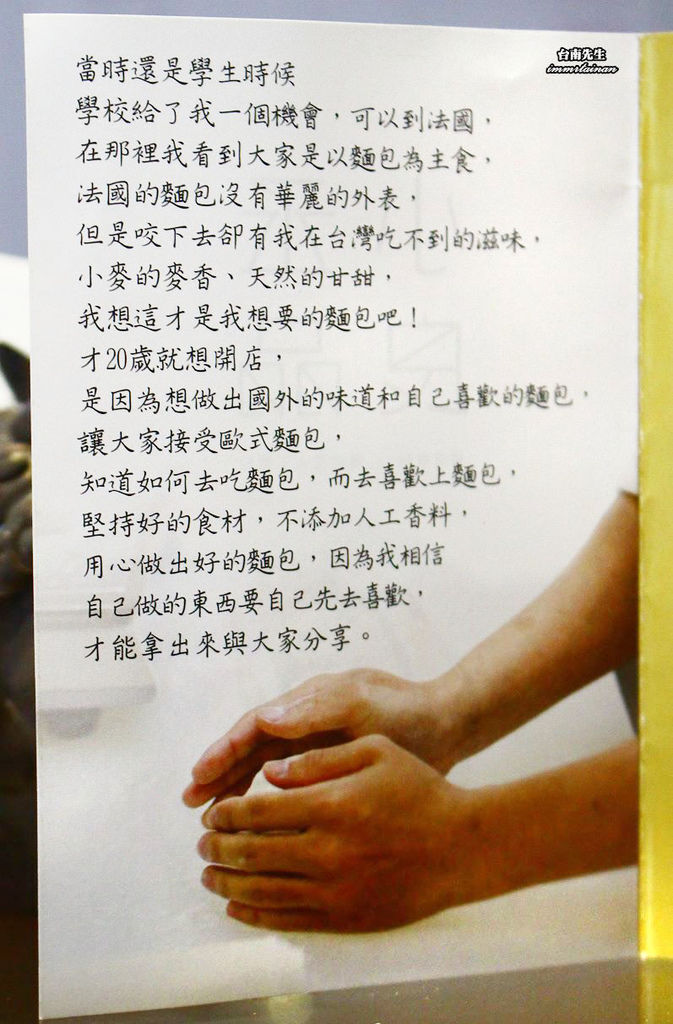 台南先生
immrtainan
當時還是學生時候
學校給了我一個機會，可以到法國，
在那裡我看到大家是以麵包為主食，
法國的麵包沒有華麗的外表，
但是咬下去卻有我在台灣吃不到的滋味，
小麥的麥香、天然的甘甜，
我想這才是我想要的麵包吧！
才20歲就想開店，
是因為想做出國外的味道和自己喜歡的麵包，
讓大家接受歐式麵包，
知道如何去吃麵包，而去喜歡上麵包，
堅持好的食材，不添加人工香料，
用心做出好的麵包，因為我相信
自己做的東西要自己先去喜歡，
才能拿出來與大家分享。